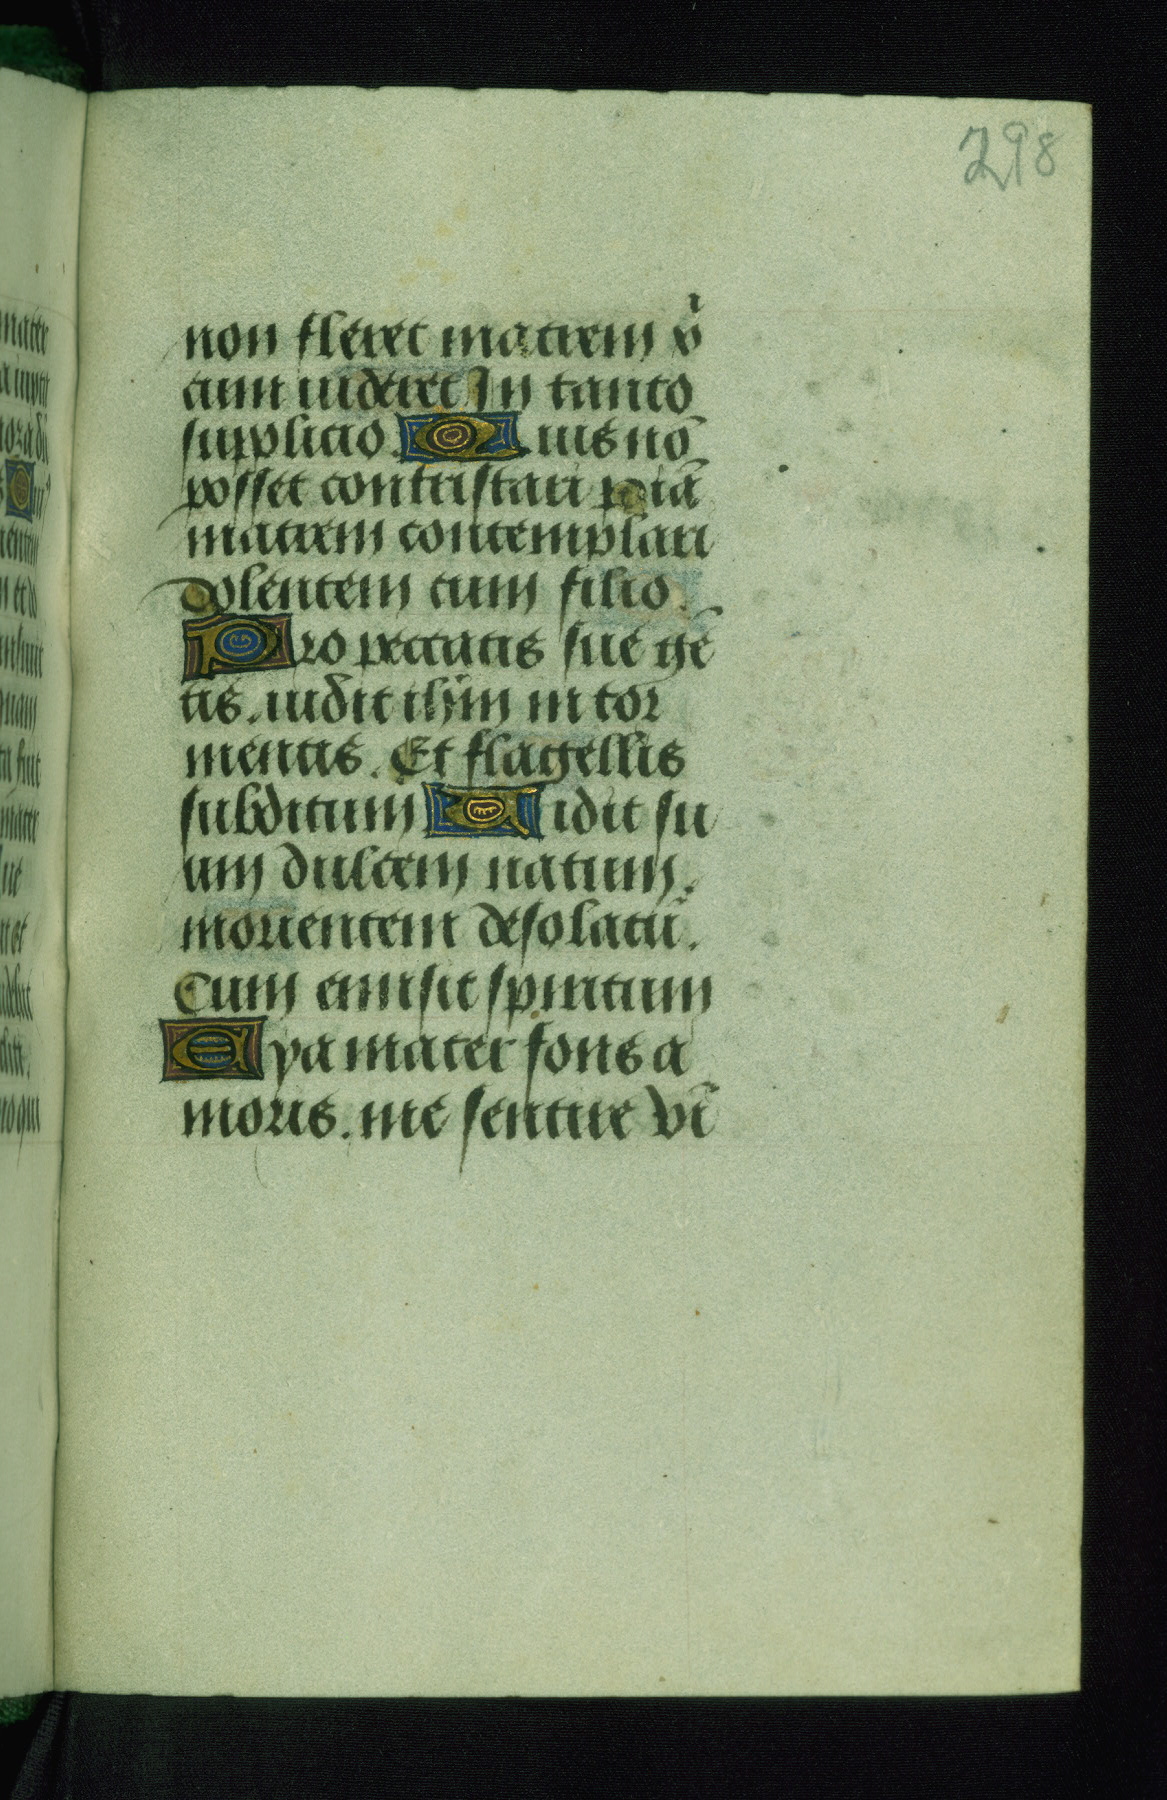 298
non fleret matrem xͥ
cum uideret In tanto
supplicio. Quis nō
posset contristari piā
matrem contemplari
dolentem cum filio.
Pro peccatis sue gē
tis. uidit ihm̄ in tor
mentis. Et flagellis
subditum Uidit su
um dulcem natum.
morientem desolatū.
Cum emisit spiritum
Eya mater fons a
moris. me sentire vī